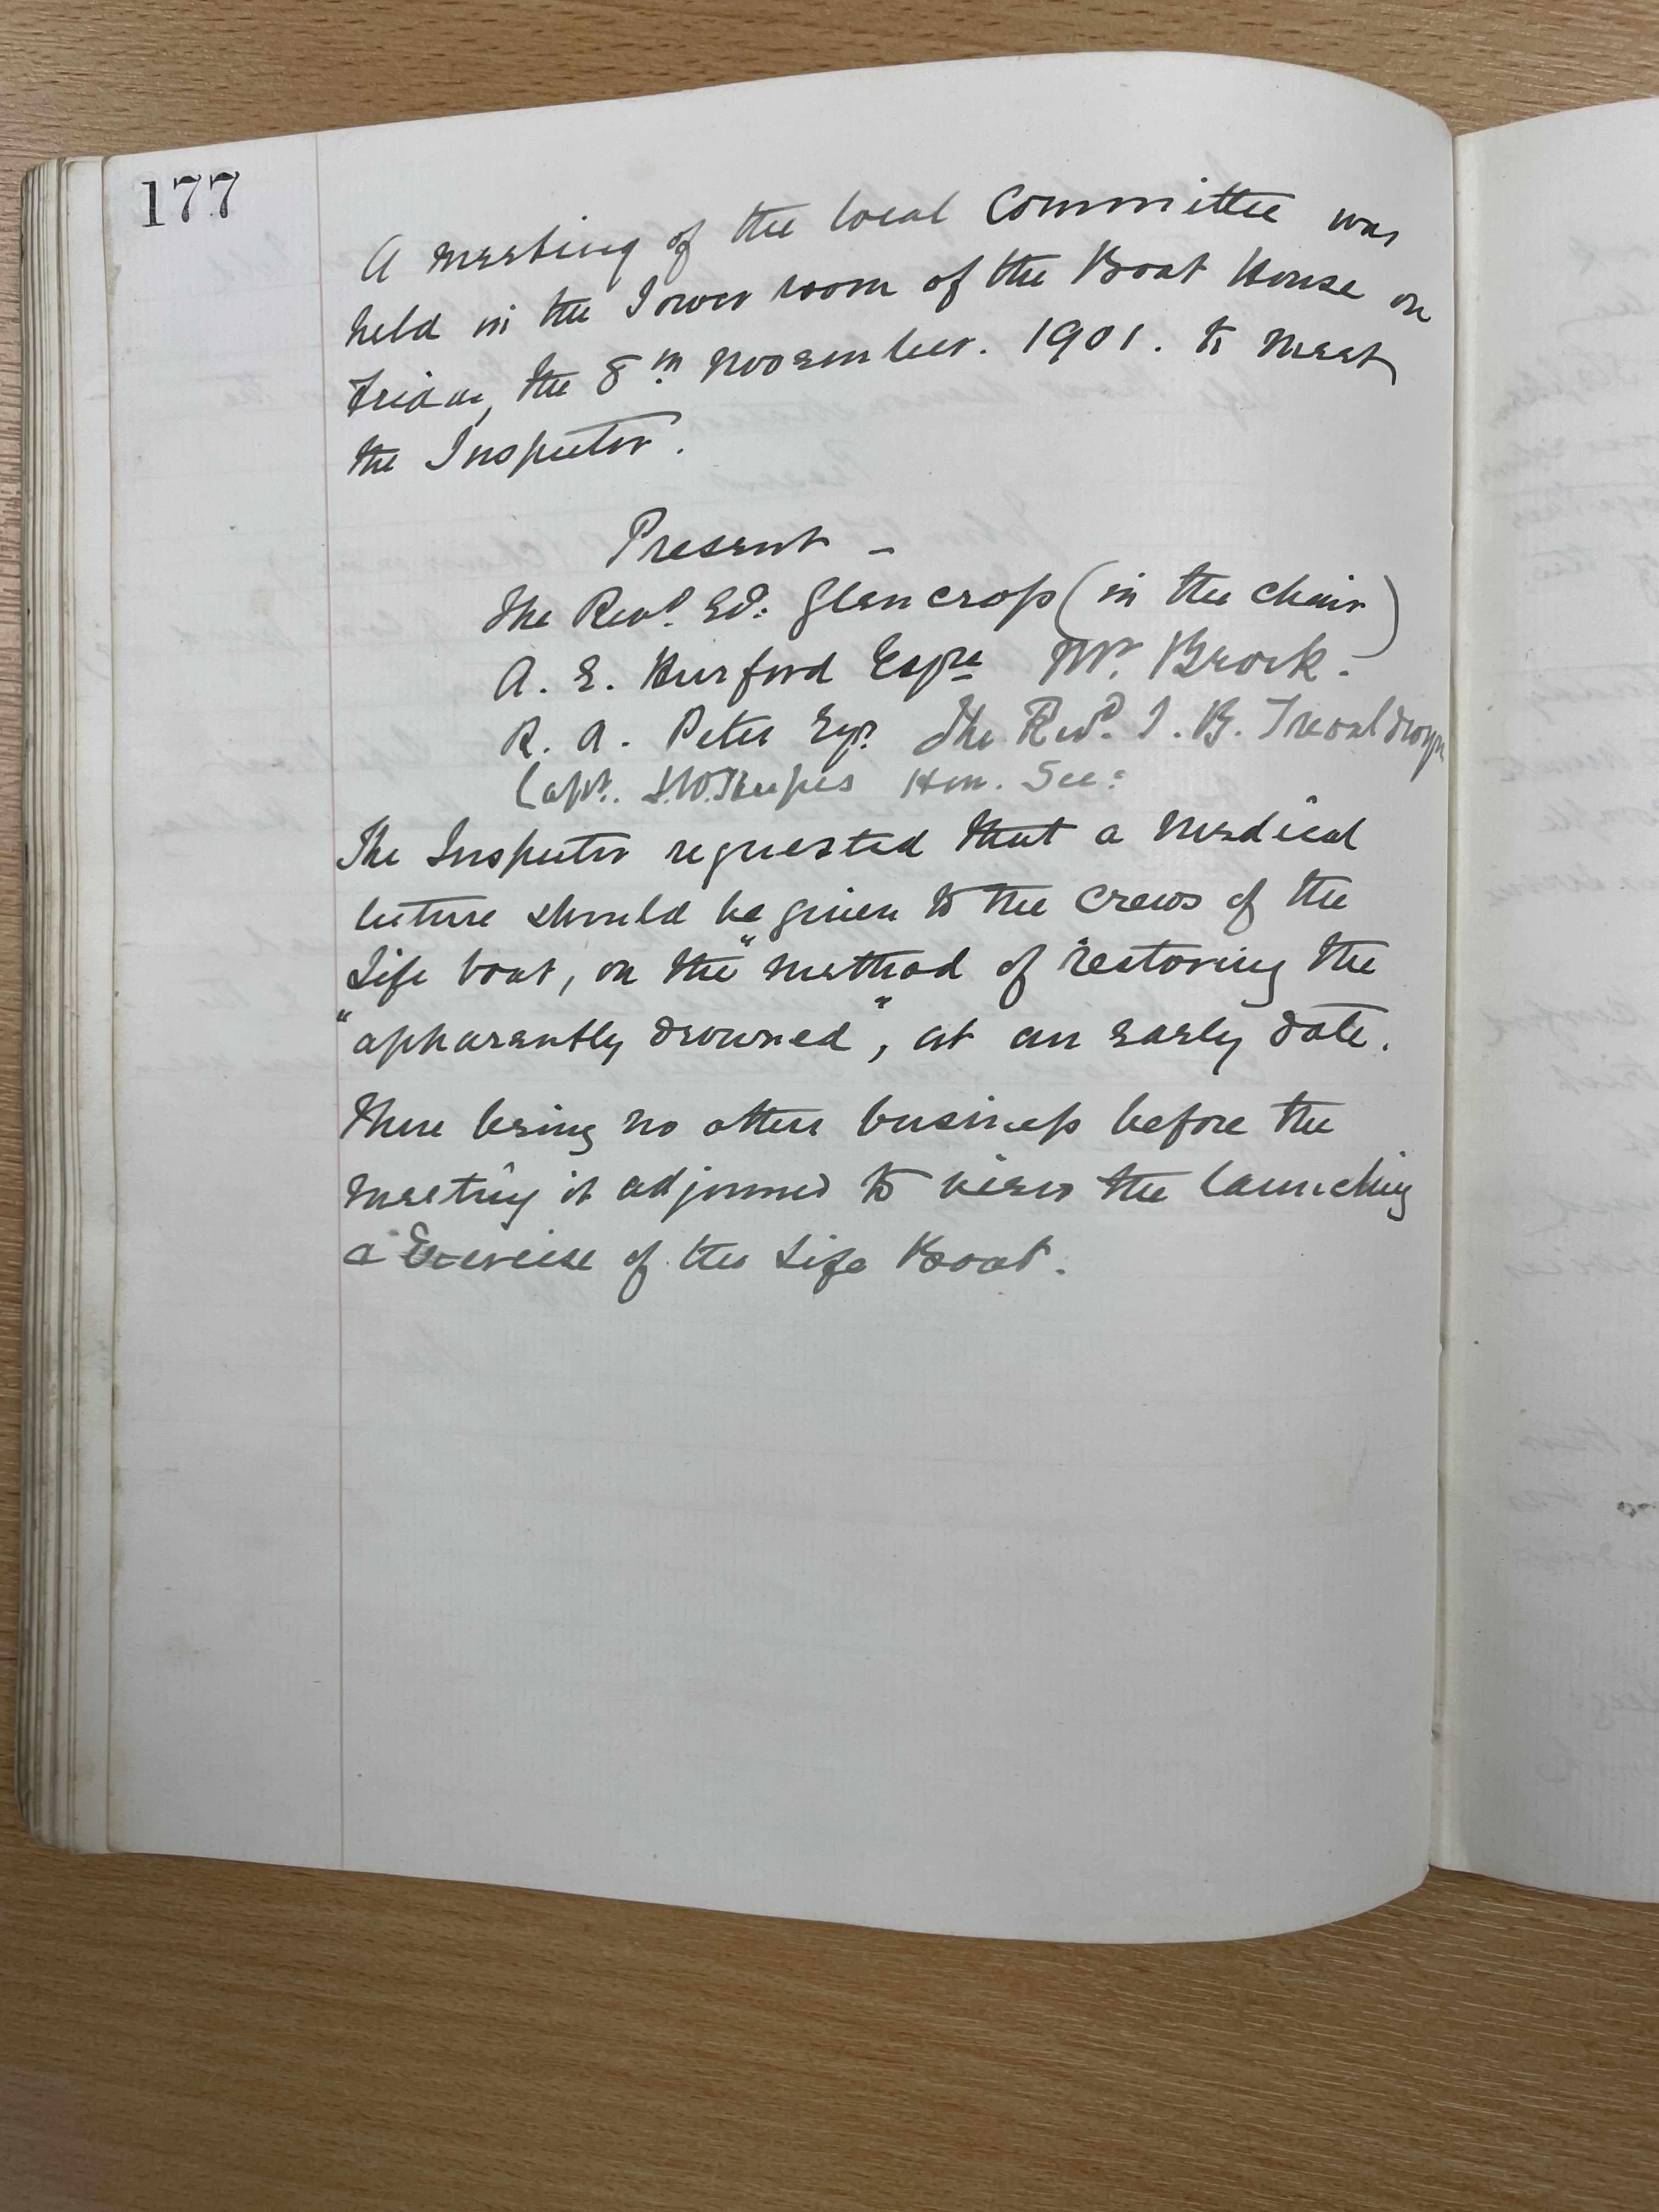 177
A meeting of the local Committee was
held in the Tower room of the Boat House on
Friday the 8th November. 1901. to meet
the Inspector.
Present –
The Revd. Ed: Glencross (in the chair)
A. E. Hurford Esqre Mr. Brock.
R. A. Peter Esqr. The Revd. J. B. Trevaldwyn
Capt. Hon. Sec:
The Inspector requested that a medical
lecture should be given to the crews of the
Life boat, on the "method of "restoring the
"apparently drowned", at an early date.
There being no other business before the
meeting it adjourned to view the launching
a Exercise of the Life Boat.